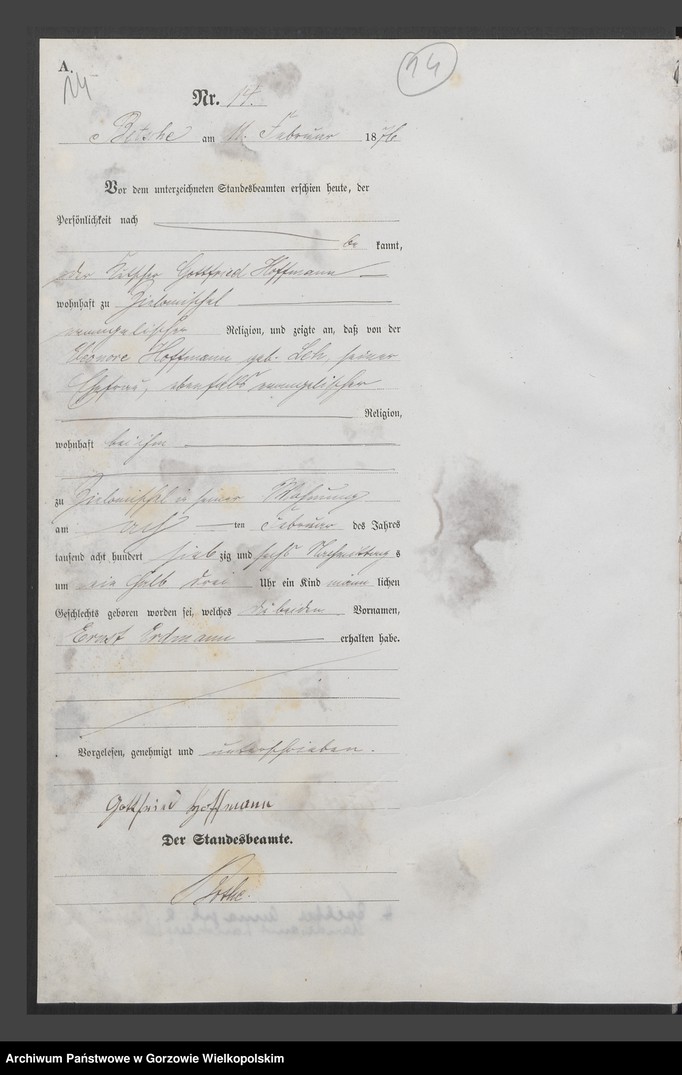 A.
14
24
Nr. 14.
Betsche am 11. Februar 1876
Vor dem unterzeichneten Standesbeamten erschien heute, der
Persönlichkeit nach
be kannt,
der Gottfried Hoffmann
wohnhaft zu
evangelischer Religion, und zeigte an, daß von der
Eleonore Hoffmann geb. seiner
Ehefrau, ebenfalls evangelischer
Religion,
wohnhaft bei ihm
zu in seiner Wohnung
am acht ten Februar des Jahres
tausend acht hundert sieb zig und sechs Nachmittag s
um ein halb drei Uhr ein Kind männ lichen
Geschlechts geboren worden sei, welches die beiden Vornamen,
Ernst Erdmann erhalten habe.
Vorgelesen, genehmigt und unterschrieben.
Gottfried Hoffmann
Der Standesbeamte.
Archiwum Państwowe w Gorzowie Wielkopolskim